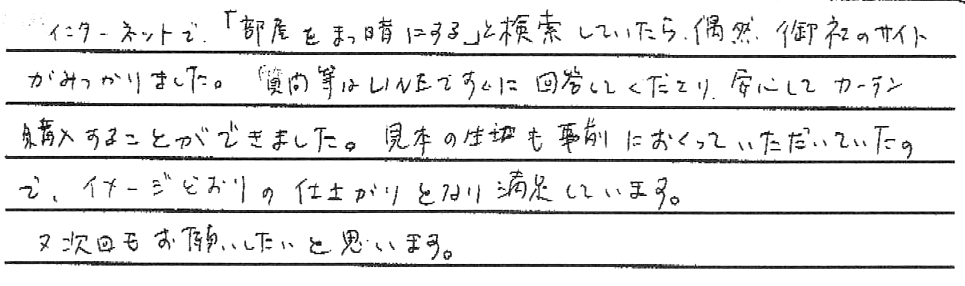 インターネットで、「部屋をまっ暗にする」と検索していたら、偶然、御社のサイト
がみつかりました。質問等はLINEですぐに回答してくださり、安心してカーテン
購入することができました。見本の生地も事前におくっていただいていたの
で、イメージどおりの仕上がりとなり満足しています。
又次回もお願いしたいと思います。